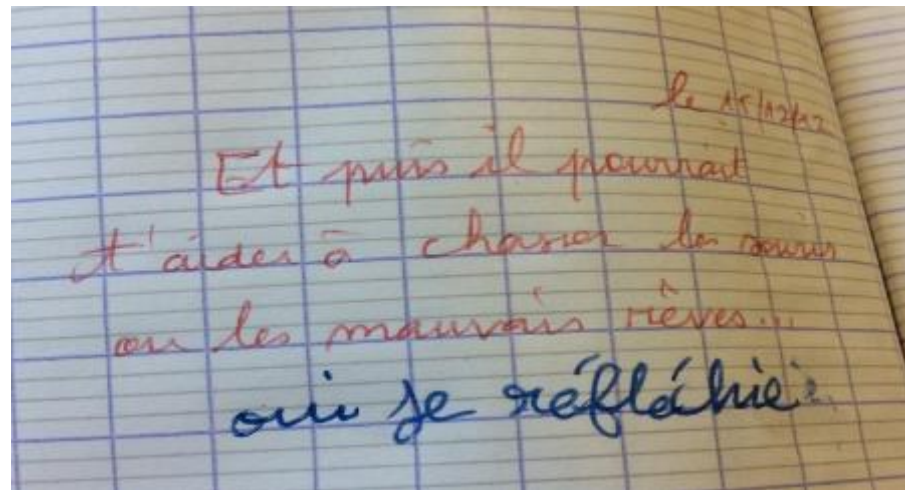 le 15/12/12
Et puis il pourrait
t'aider à chasser les souris
ou les mauvais rêves...
oui je réfláhie